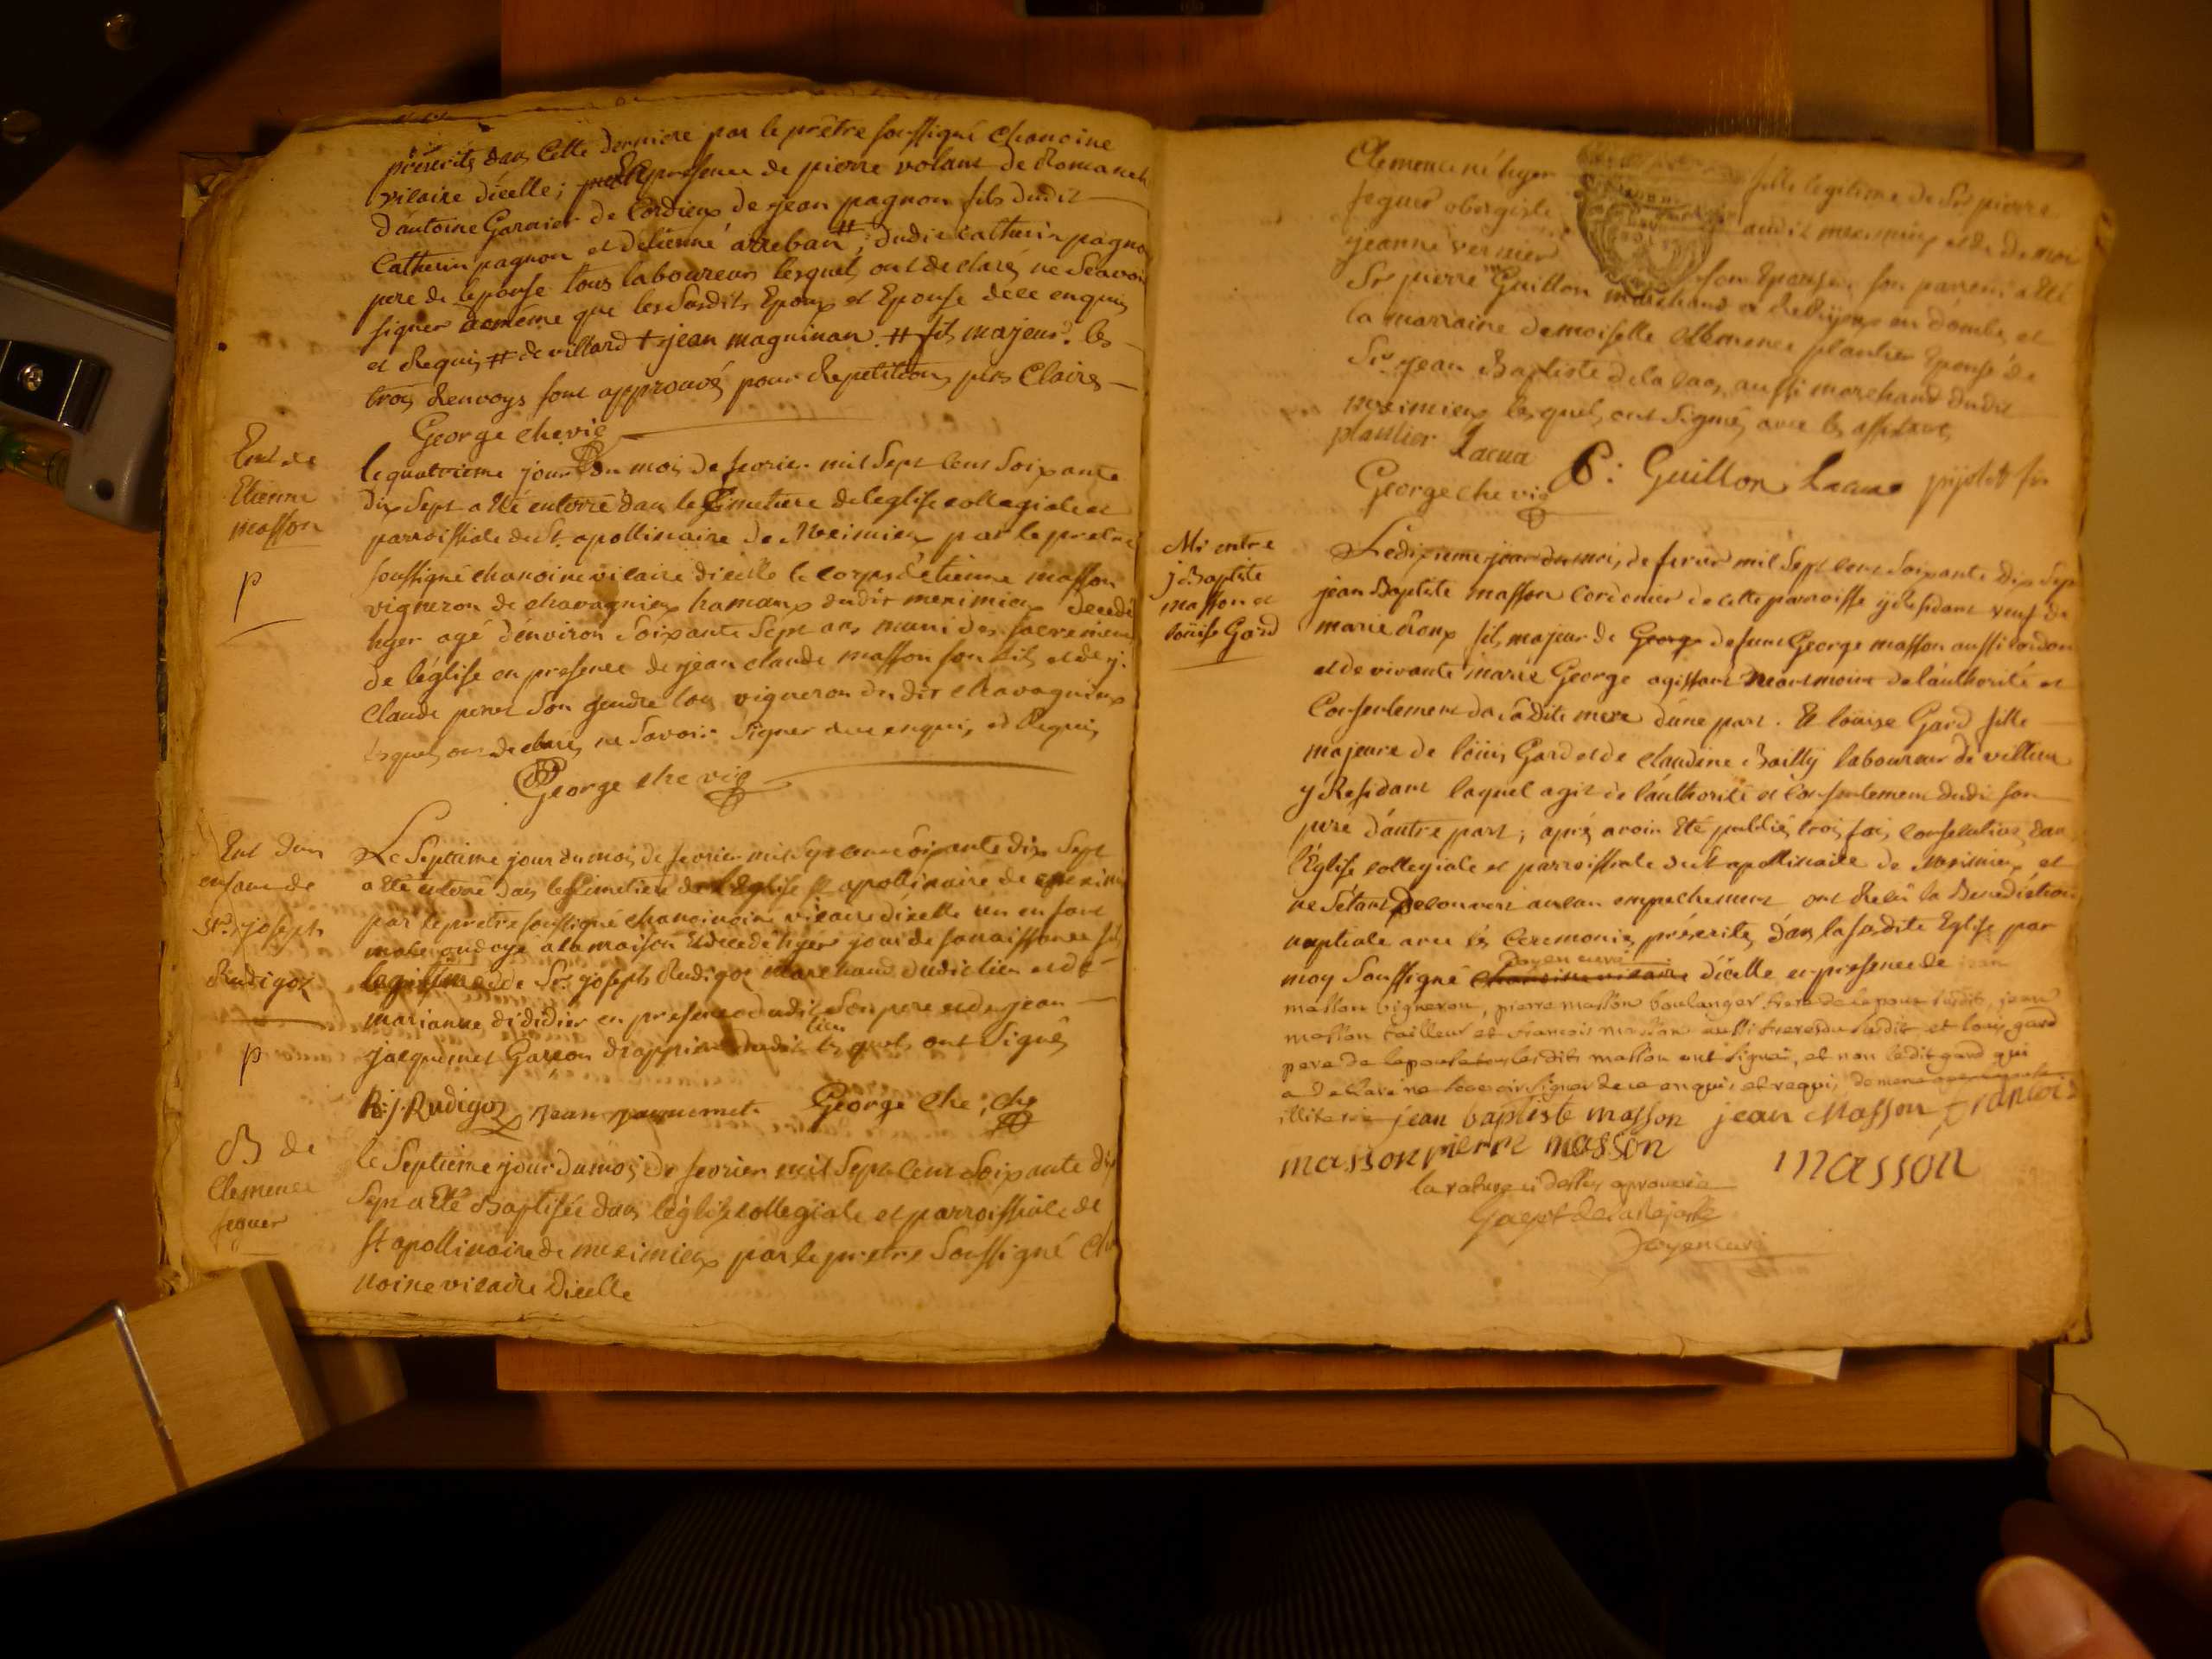 préscrites dans Cette derniere par le prêtre soussigné Chanoine
vicaire d'icelle; En presence de pierre volant de Romaneh
d'antoine Garnier de Cordieux de jean pagnon fils dudit
Catherin pagnon et d'etienne arreban #; dudit catherin pagnon
pere de lepouse tous laboureurs lesquels ont declarés ne sçavoir
signer de même que les susdits Epoux et Epouse de ce enquis
et Requis # de villard + jean maguinan. # fils majeur? les
trois Renvoys sont approuvés pour Repetitions plus Claires
George che vic
Ent de
Etienne
masson
P
le quatrieme jour du mois de fevrier mil Sept Cent Soixante
dix Sept a Eté enterré dans le Cimetiere de l'eglise collegiale et
parroissiale de St. apollinaire de Meximieux par le pretre
soussigné chanoine vicaire d'icelle le corps d'etienne masson
vigneron de chavagnieux hameaux dudit meximieux decedé
hyer agé d'environ Soixante Sept ans muni des sacremens
de l'église en presence de jean claude masson son fils et de j.
Claude peret Son gendre tous vigneron du dit chavagnieux
lesquels ont declarés ne Savoir Signer de ce enquis et Requis
George che vic
Ent d'un
enfant de
Sr. joseph
Rudigoz
P
Le Septieme jour du mois de fevrier mil Sept cent soixante dix Sept
a Eté enterré dans le Cimetiere de l'Eglise St apollinaire de meximieux
par le prêtre soussigné chanoine vicaire d'icelle un enfant
male ondoyé a la maison et decedé hyer jour de sa naissance fils
legitime de Sr. joseph Rudigoz marchand dudit lieu et de
marianne didier en presence dudit Son pere et de jean
jacquemet Garçon drappier dudit lieu lesquels ont Signés
R: j. Rudigoz jean jacquemet George che, che
B de
Clemence
feguer
le Septieme jour du mois de fevrier mil Sept Cent Soixante dix
Sept a Eté Baptisée dans l'église collegiale et parroissiale de
St apollinaire de meximieux par le pretre Soussigné Cha
noine vicaire d'icelle
Clemence né hyer fille legitime de Sr pierre
feguer obergiste audit meximieux et de demoi
jeanne vernier son Epouse son parrein a Eté
Sr pierre Guillon marchand a Chatillon en dombe et
la marraine demoiselle clemence plantier Epouse de
Sr. jean Baptiste de la cua aussi marchand dudit
meximieux lesquels ont Signés avec les assistans
plantier Lacua P: Guillon Lacua
George che vic
Mi entre
j Baptiste
masson et
loüise Gard
Le dixieme jour du mois de fevrier mil Sept Cent Soixante dix Sept
jean Baptiste masson Cordonier de cette parroisse y Residant veuf de
marie Roux fils majeur de George defunt George masson aussi cordon
et de vivante marie George agissant neantmoins de l'authorité et
Consentement de sa dite mere d'une part. Et loüise Gard fille
majeure de loüis Gard et de claudine Bailly laboureur de villieu
y Residant laquel agit de l'authorité et Consentement dudit son
pere d'autre part; aprés avoir Eté publiés trois fois consecutives dans
l'Eglise collegiale et parroissiale de St apollinaire de Meximieux et
ne S'étant decouvert aucun empechement ont Reçû la Benediction
nuptiale avec les Ceremonies préscrites dans la susdite Eglise par
doyen curé
moy Soussigné chanoine vicaire d'icelle en presence de jean
masson vigneron, pierre masson boulanger frere de lepoux susdit, jean
masson tailleur et francois masson aussi freres du susdit et louis gard
pere de lepouse tous lesdits masson ont signés, et non ledit gard qui
a declaré ne sçavoir signer de ce enquis et requis
jean baptiste masson jean Masson francois
masson pierre masson masson
la rature ci dessus aprouvée
doyen curé